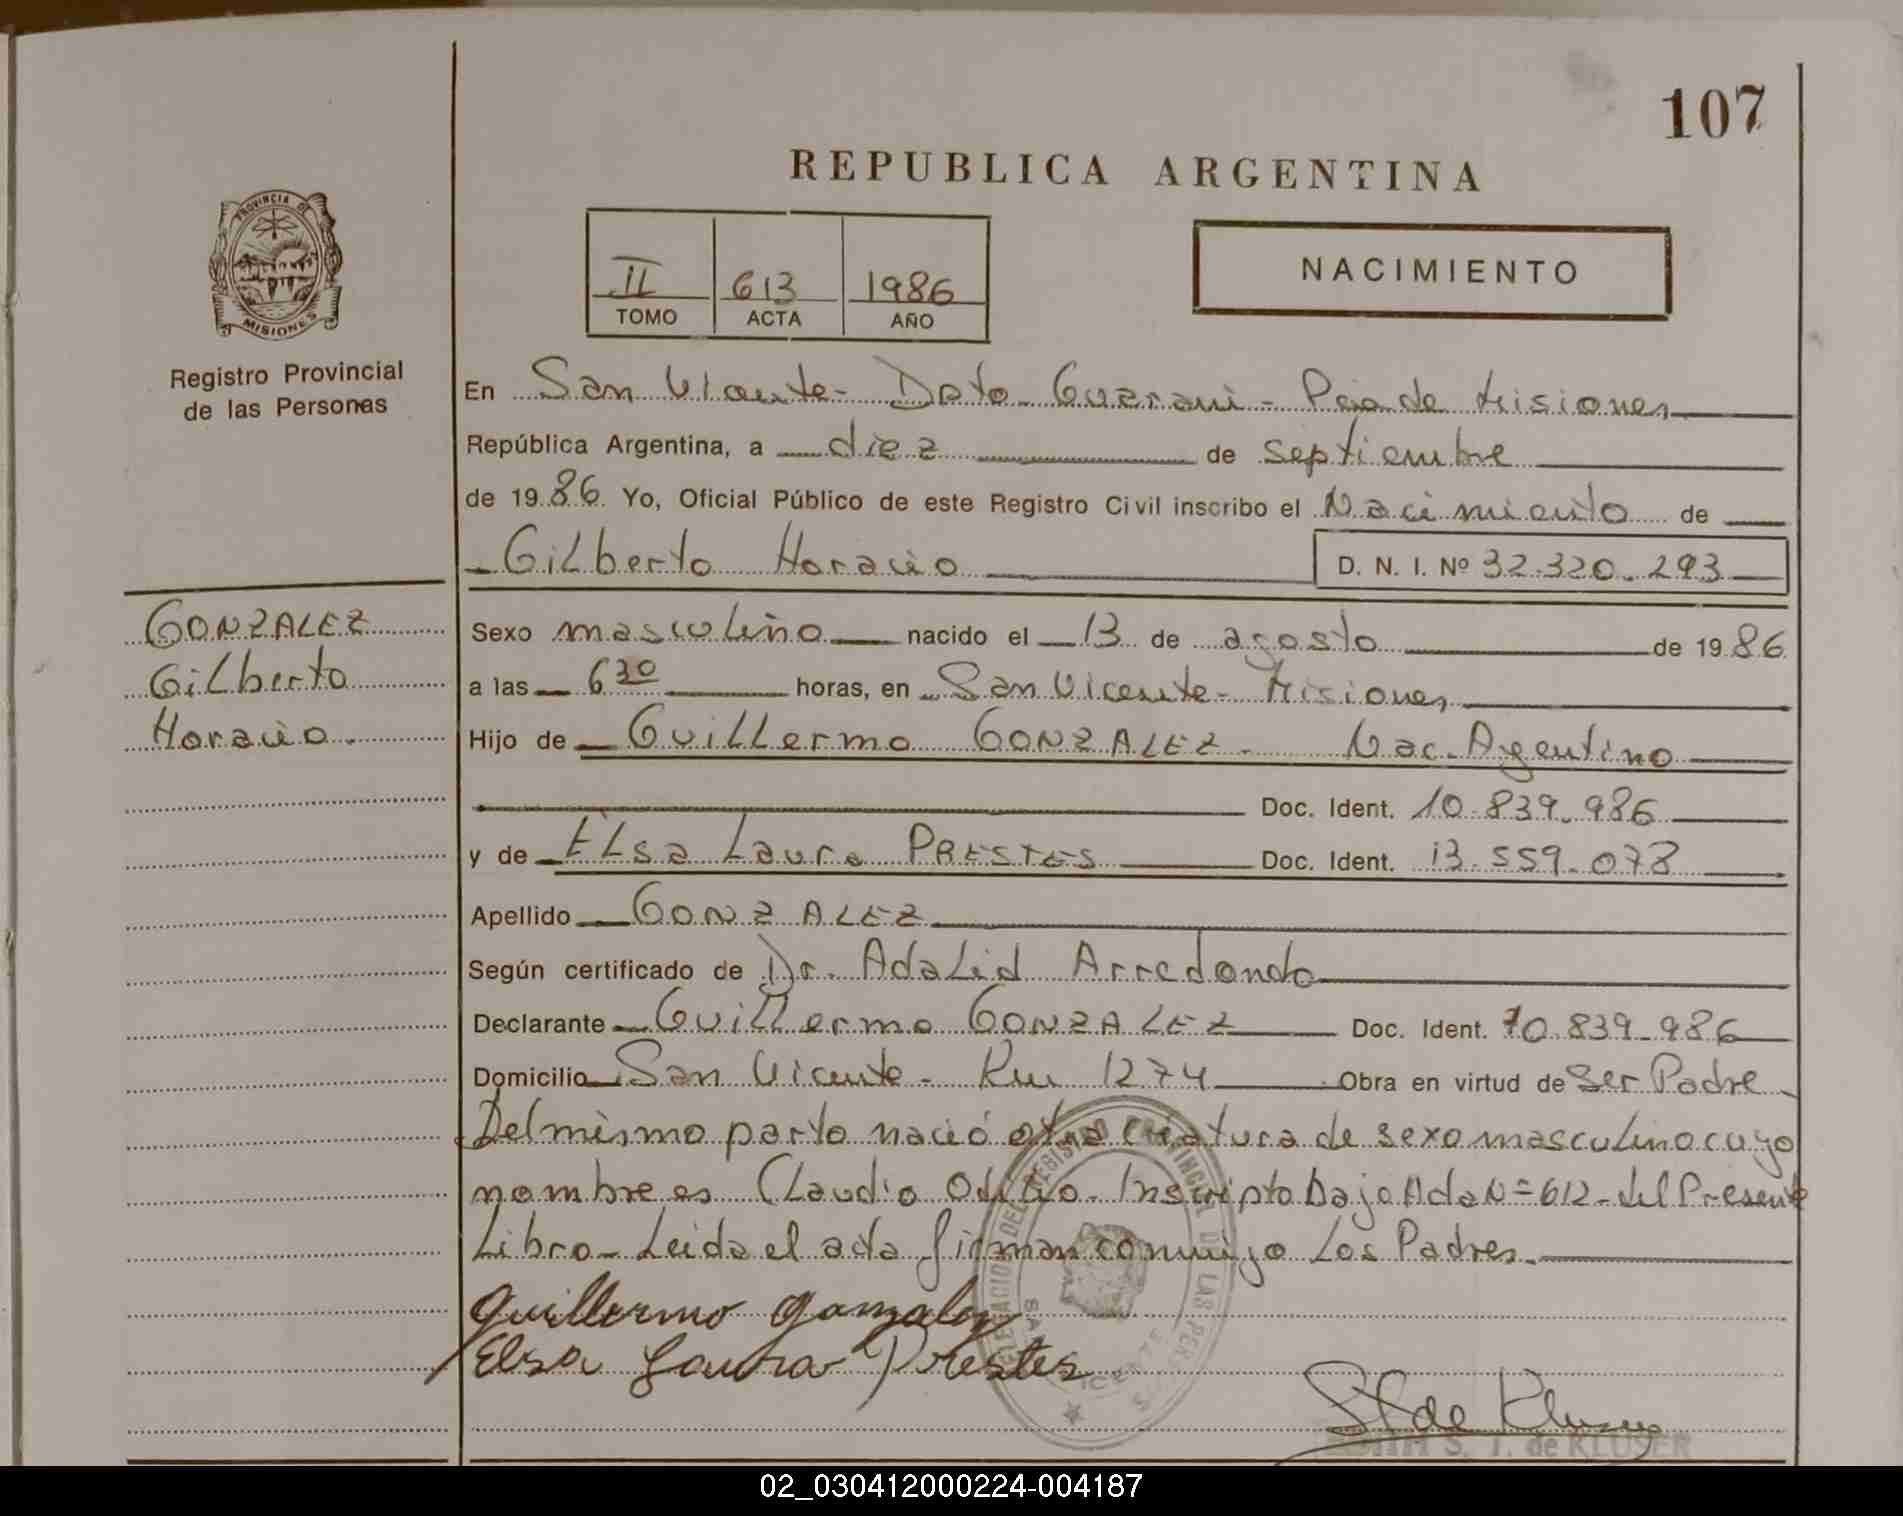 107
REPUBLICA ARGENTINA
PROVINCIA DE
MISIONES
Registro Provincial
de las Personas
II 613 1986
TOMO ACTA AÑO
NACIMIENTO
En San Vicente - Dpto Guarani - Pcia de Misiones
República Argentina, a diez de septiembre
de 1986 Yo, Oficial Público de este Registro Civil inscribo el Nacimiento de
Gilberto Horacio D. N. I. Nº 32.320.293
GONZALEZ
Gilberto
Horacio.
Sexo masculino nacido el 13 de agosto de 1986
a las 6 30 horas, en San Vicente - Misiones
Hijo de Guillermo GONZALEZ. Nac. Argentino
Doc. Ident. 10.839.986
y de Elsa Laura PRESTES Doc. Ident. 13.559.078
Apellido GONZALEZ
Según certificado de Dr. Adalid Arredondo
Declarante Guillermo GONZALEZ Doc. Ident. 10.839.986
Domicilio San Vicente - Km 1274 Obra en virtud de Ser Padre
Del mismo parto nació otra criatura de sexo masculino cuyo
nombre es Claudio Inscripto bajo Acta Nº 612 - del Presente
Libro - Leida el acta firman conmigo Los Padres.
Guillermo Gonzalez
Elsa Laura Prestes
S. T. de KLUSER
02_030412000224-004187